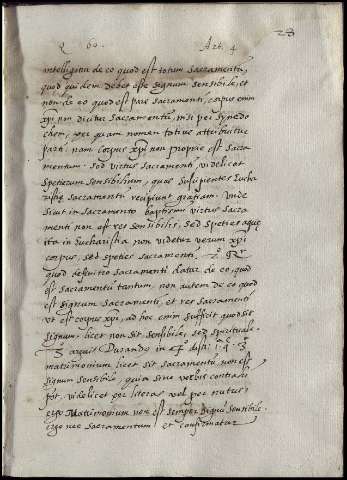 Q 60. Art. 4 28
intelligitur de eo quod est totum sacramentũ,
quod quidem debet esse signum sensibile, et
non de eo quod est pars sacramenti, corpus enim
xp̃i non dicitur sacramentũ, nisi per synedo
chen, per quam nomen totius attribuitur
parti. nam corpus xp̃i non proprie est sacra
mentum. sed virtus sacramenti, videlicet
specierum sensibilium, quas suscipientes Eucha
ristiæ sacramentũ recipiunt gratiam. Unde
sicut in sacramento baptismi virtus sacra
menti non est res sensibilis, sed species aquæ
ita in Eucharistia non videtur verum xp̃i
corpus, sed species sacramenti. 2.º R.r
quod definitio sacramenti datur de eo, quod
est sacramentũ tantum, non autem de eo quod
est signum sacramenti, et res sacramenti
ut est corpus xp̃i, ad hoc enim sufficit quod sit
signum, licet non sit sensibile, sed spirituale.
3 arguit Durandus in 4.º dist. 1.ª q. 3
matrimonium licet sit sacramentũ non est
signum sensibile, quia sine verbis contrahi
põt, videlicet per literas vel per nutus,
ergo Matrimonium non est semper signũ sensibile.
ergo nec sacramentum et confirmatur